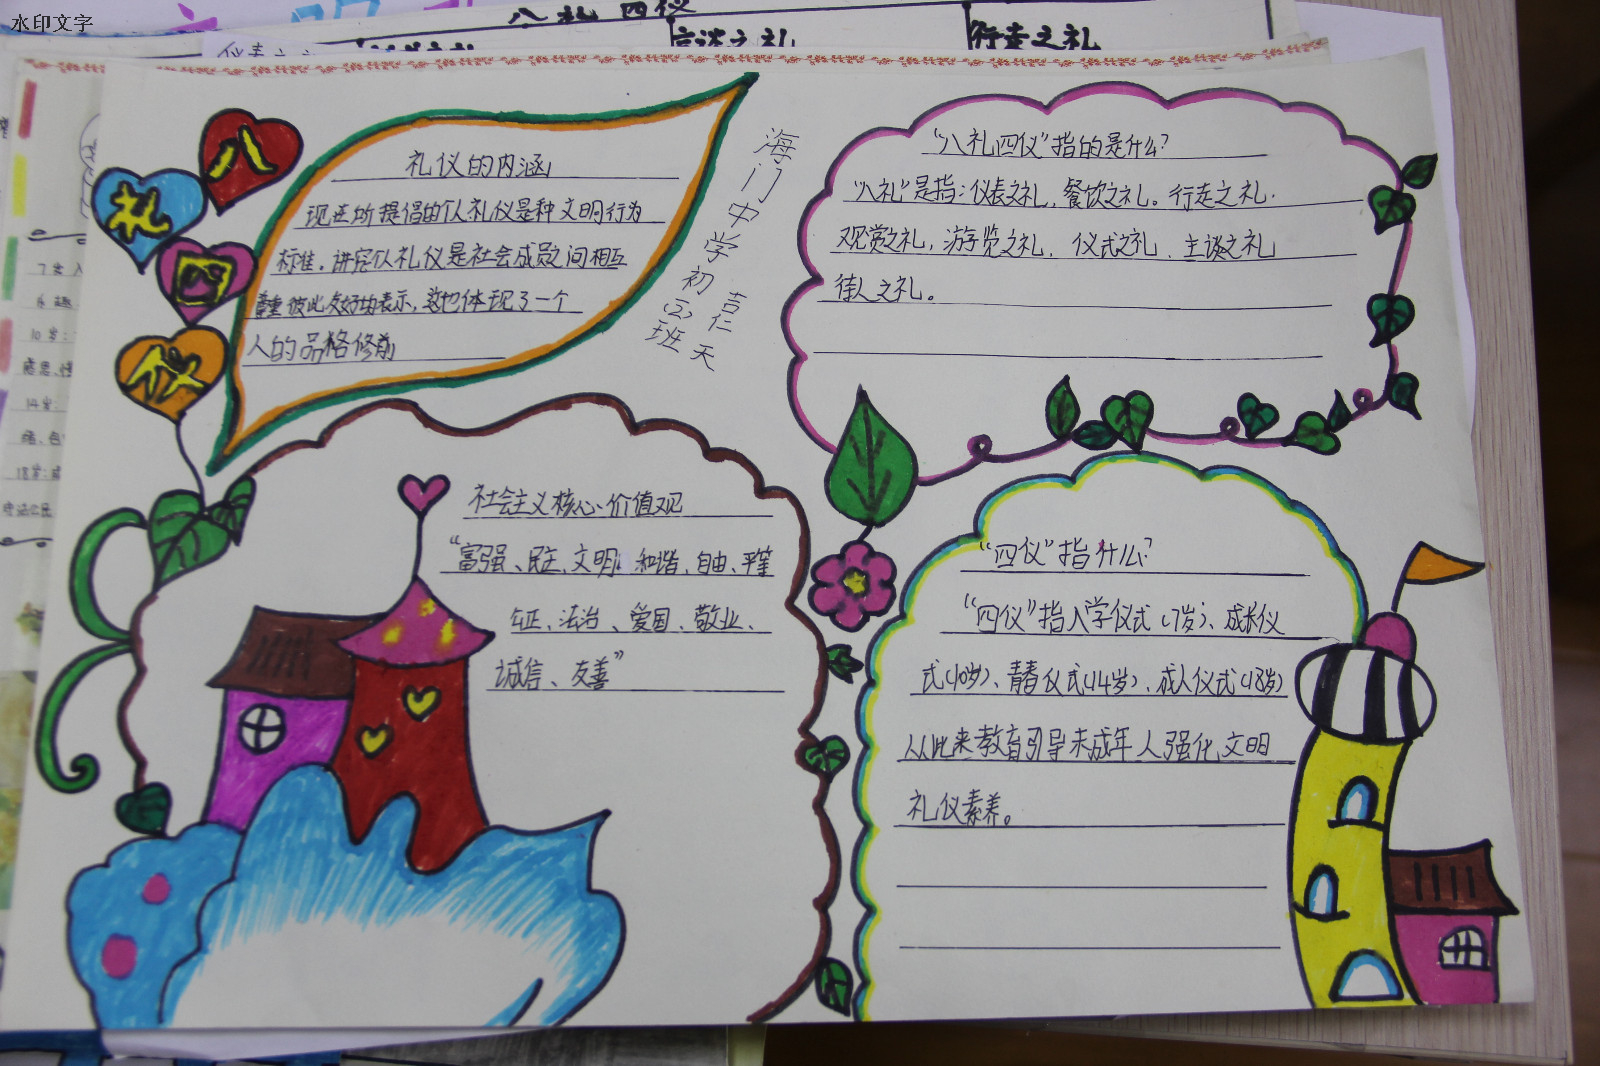 水印文字
八礼四仪
言谈之礼
行走之礼
八
礼
四
仪
礼仪的内涵
现在所提倡的个人礼仪是种文明行为
标准。讲究个人礼仪是社会成员之间相互
尊重彼此友好的表示，这也体现了一个
人的品格修前
海门中学初(2)班
吉仁天
“八礼四仪”指的是什么?
“八礼”是指：仪表之礼，餐饮之礼。行走之礼.
观赏之礼，游览之礼．仪式之礼．主谈之礼
待人之礼。
社会主义核心价值观
“富强、民主、文明、和谐、自由、平等
公正、法治、爱国、敬业、
诚信、友善”
“四仪”指什么?
“四仪”指入学仪式(7岁)、成长仪
式(10岁)、青春仪式(14岁)、成人仪式(18岁)
从此来教育引导未成年人强化文明
礼仪素养。
10岁：
14岁：
18岁：